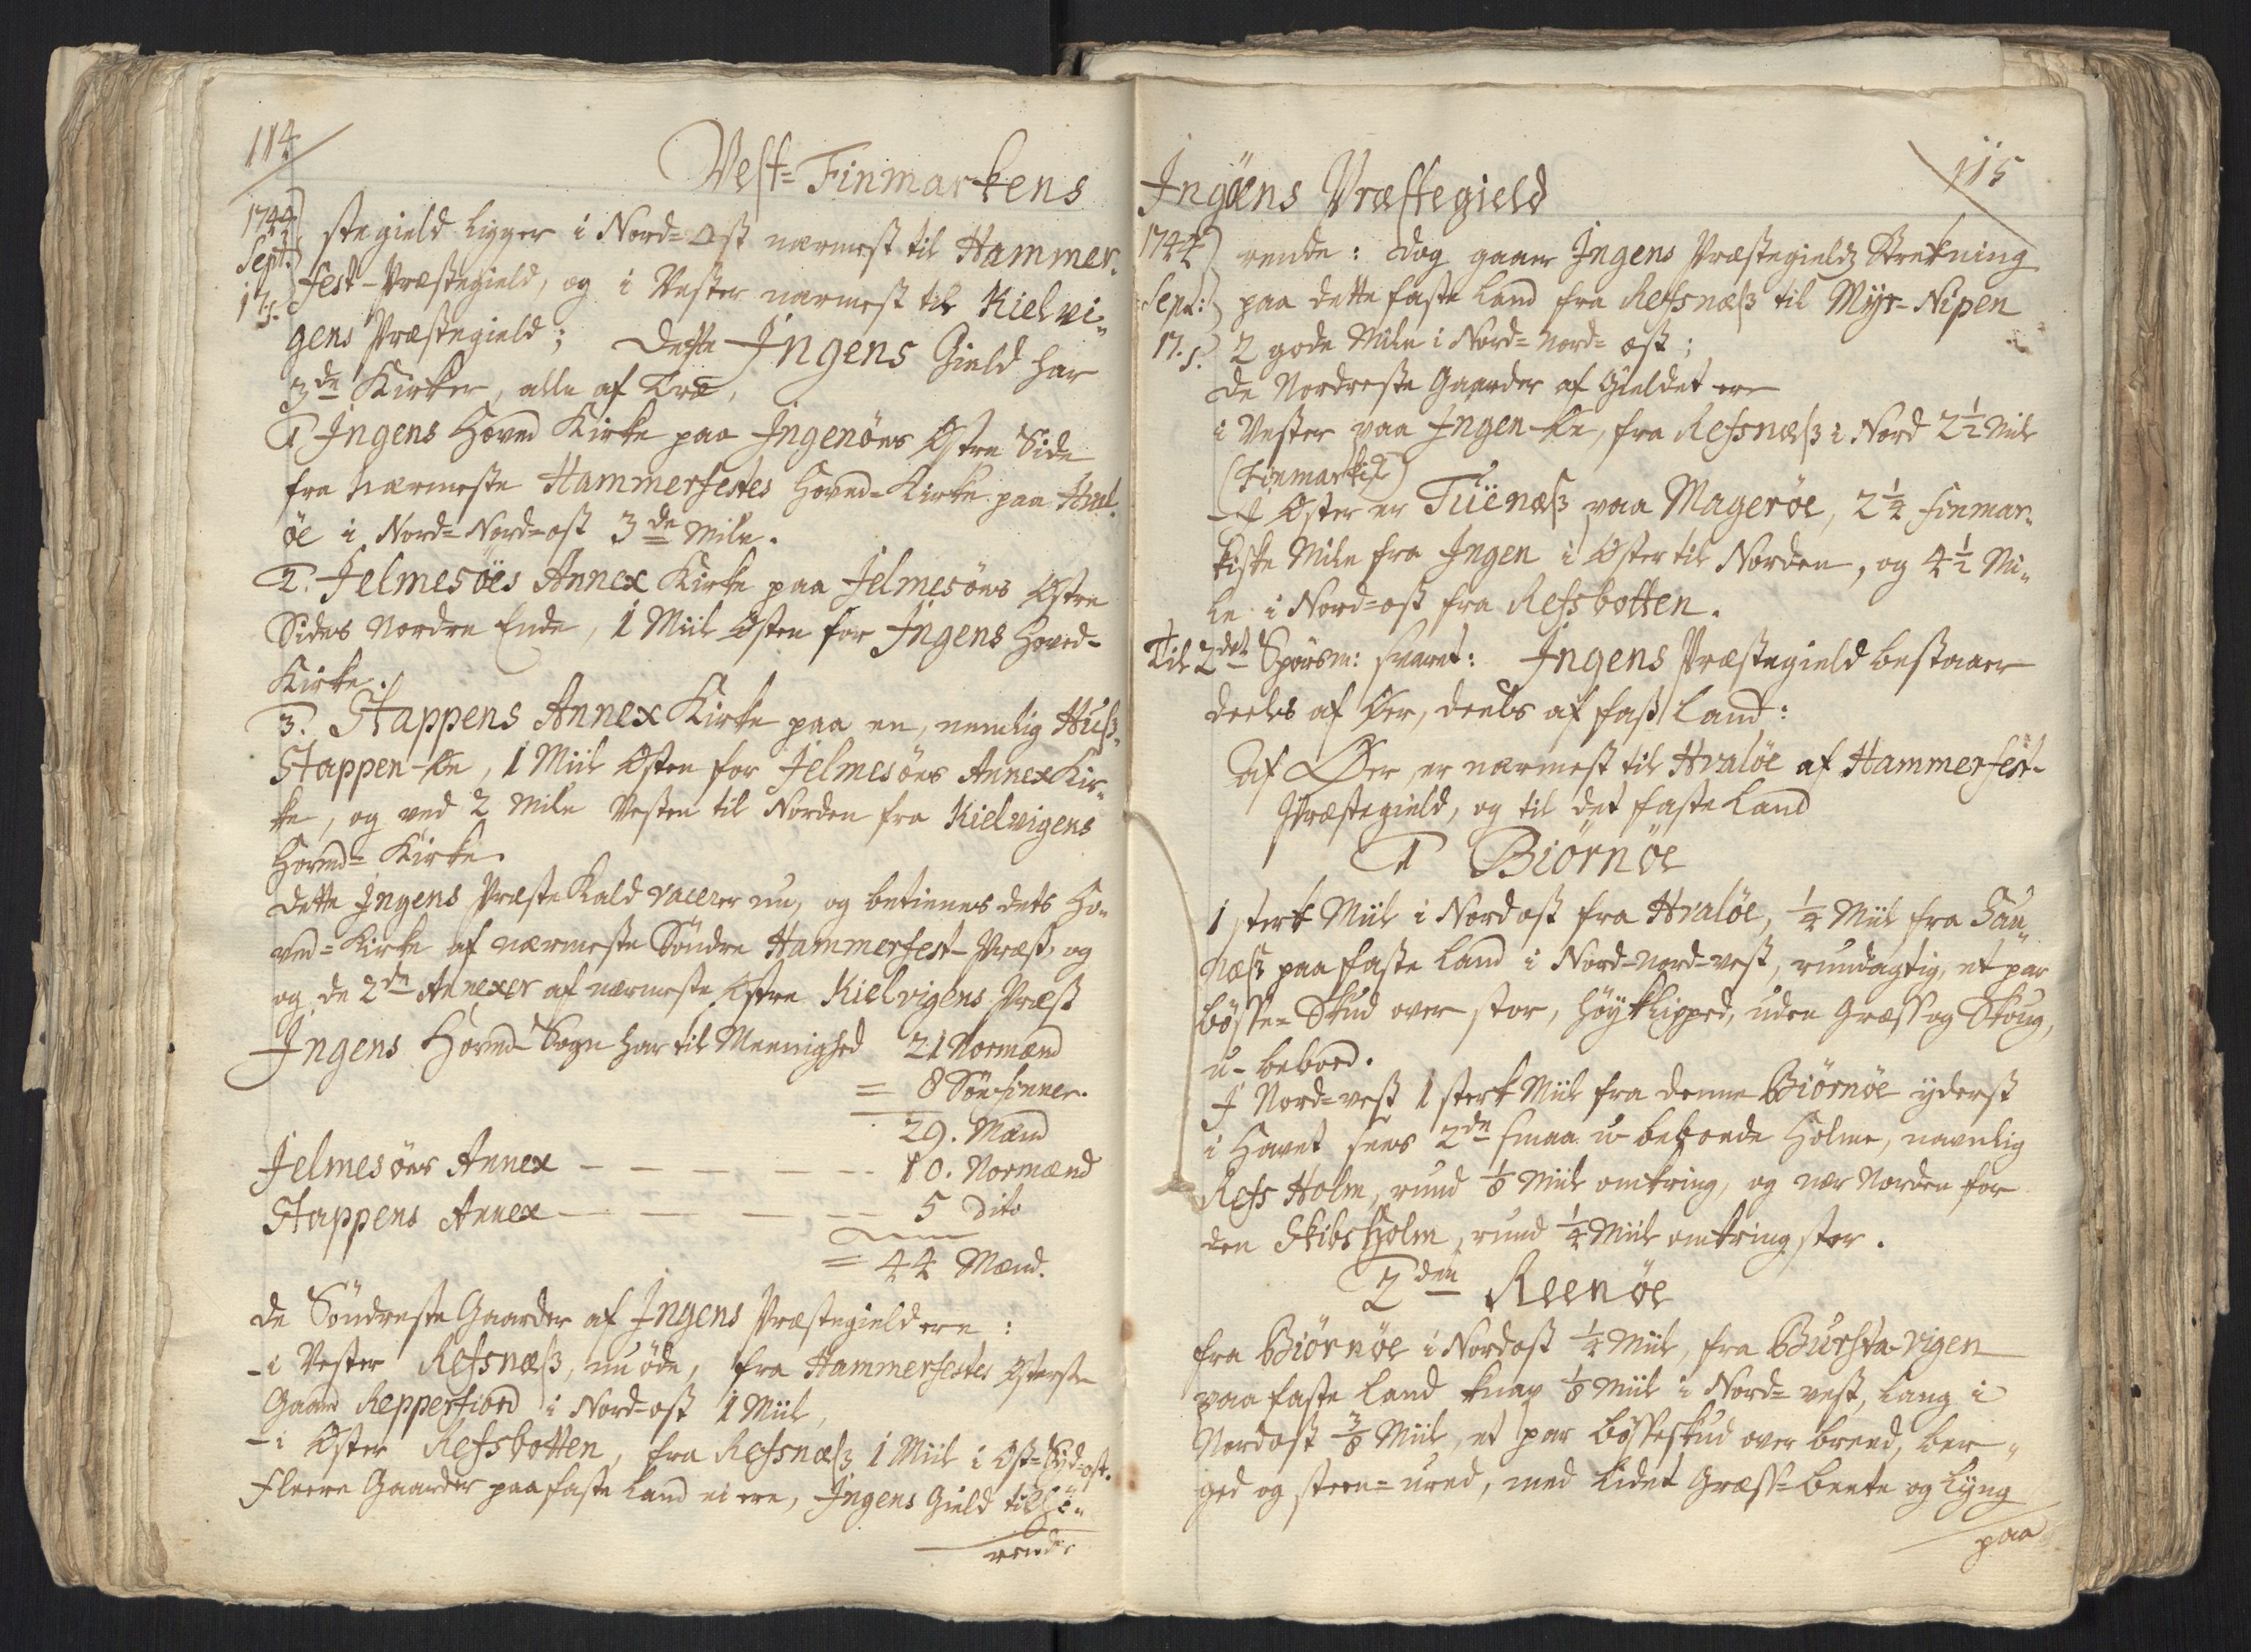 114
Vest=Finmarkens
1744
Sept:
17. s.
stegield ligger i Nord=Ost nærmest til Hammer=
fest-Præstegield, og i Vester nærmest til Kielvi=
gens Præstegield; Dette Ingens Gield har
3de Kirker, alle af Træ,
1 Ingens Hoved Kirke paa Ingenöes Østre Side
fra nærmeste Hammerfestes Hoved=Kirke paa Hval=
öe i Nord=Nord=ost 3de Mile.
2. Jelmesöes Annex Kirke paa Jelmesöes Østre
Sides Nordre Ende, 1 Miil Østen for Ingens Hoved-
Kirke.
3. Stappens Annex Kirke paa en, nemlig Huß=
Stappen-Øe, 1 Miil Østen for Jelmesöes Annex Kir=
ke, og ved 2 Mile Vesten til Norden fra Kielvigens
Hoved=Kirke.
Dette Ingens Præste Kald vacerer nu, og betienes dets Ho=
ved=Kirke af nærmeste Söndre Hammerfest-Præst, og
og de 2de Annexer af nærmeste Østre Kielvigens Præst
Ingens Hoved-Sogn har til Meenighed 21 Normænd
= 8 Söe finner.
29. Mænd
Jelmesöes Annex — — — — — 10. Normænd
Stappens Annex — — — — — 5 dito
= 44 Mænd.
De Söndreste Gaarder af Ingens Præstegield ere:
- i Vester Refsnæß, nu öde, fra Hammerfestes Østerste
Gaard Repperfiord i Nord-ost 1 Miil,
- i Øster Refsbotten, fra Refsnæß 1 Miil i Ost=Syd-ost.
Fleere Gaarder paa faste Land ei ere, Ingens Gield tilhö=
rende
115
Ingöens Præstegield
1744
Sept:
17. s.
rende: dog gaaer Ingens Præstegields Strekning
paa dette faste Land fra Refsnæß til Myr-Nipen
2 gode Mile i Nord=Nord=ost;
De Nordreste Gaarder af Gieldet ere
i Vester paa Ingen-Øe, fra Refsnæß i Nord 2½ Mile
(Finmarkisk)
- I Øster er Tüenæß paa Magerøe, 2¼ Finmar=
kiske Mile fra Ingen i Øster til Norden, og 4½ Mi=
le i Nord=ost fra Refsbotten.
Til 2det Spörsm: svaret: Ingens Præstegield bestaaer
deels af Øer, deels af fast Land:
Af Øer er nærmest til Hvaløe af Hammerfest-
Præstegield, og til det faste Land
1 Biørnöe
1 sterk Miil i Nordost fra Hvaløe, ¼ Miil fra Hau=
næß paa faste Land i Nord-nord-vest, rundagtig, et par
bösse=Skud over stor, höyklipped, uden Græss og Skoug,
u-beboed.
I Nord=vest 1 sterk Miil fra denne Biørnöe yderst
i Havet sees 2de smaa u-beboede Holme, navnlig
Refs Holm, rund ⅛ Miil omkring, og nær Norden for
den Skibs Holm, rund ¼ Miil omkring stor.
2den Reenöe
fra Biørnöe i Nordost ¼ Miil, fra Bursta-vigen
paa faste Land knap ⅛ Miil i Nord=vest, lang i
Nordost ⅜ Miil, et par bösseskud over breed, ber=
ged og steen=ured, med lidet Græss=beete og Lyng
paa